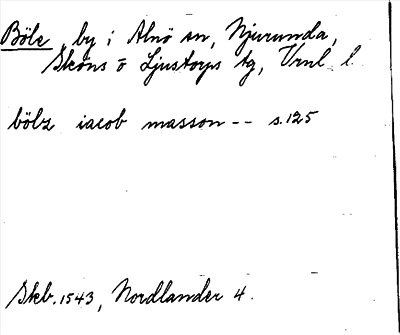 Böle by i Alnö sn, Njurunda,
Sköns o Ljustorps tg, Vrnl l.
bölz iacob masson -- s.125
Skb. 1543, Nordlander 4.